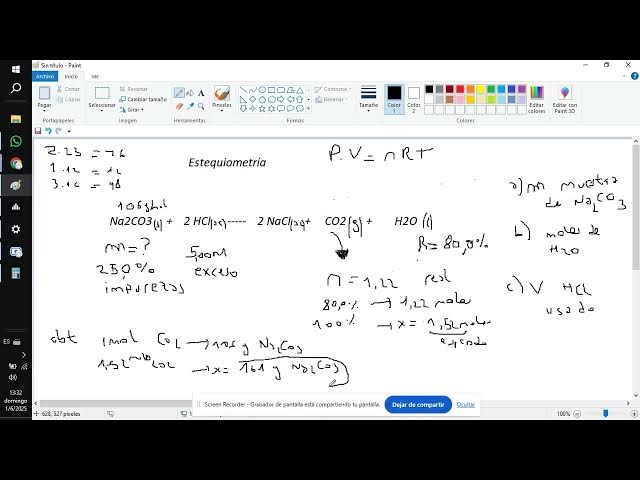 Sin título - Paint
Archivo Inicio Ver
Pegar
Cortar
Copiar
Portapapeles
Seleccionar
Recortar
Cambiar tamaño
Girar
Imagen
Herramientas
Pinceles
Contorno
Relleno
Formas
Tamaño
Color 1
Color 2
Colores
Editar colores
Editar con Paint 3D
2.23 = 46
1.12 = 12
3.16 = 48
Estequiometría
P.V = nRT
106g/mol
Na2CO3(s) + 2 HCl(ac)----- 2 NaCl(ac)+ CO2(g) + H2O (l)
m = ?
25,0%
impurezas
5,00M
exceso
R = 80,0%
n = 1,22 real
80,0% → 1,22 moles
100% → x = 1,52 moles
a) m muestra
de Na2CO3
b) moles de
H2O
c) V HCl
usado
1mol CO2 → 106 g Na2CO3
1,52 moles CO2 → x = 161 g Na2CO3
ES
13:32
domingo
1/6/2025
Screen Recorder - Grabador de pantalla está compartiendo tu pantalla.
Dejar de compartir
Ocultar
628, 527 píxeles
100%